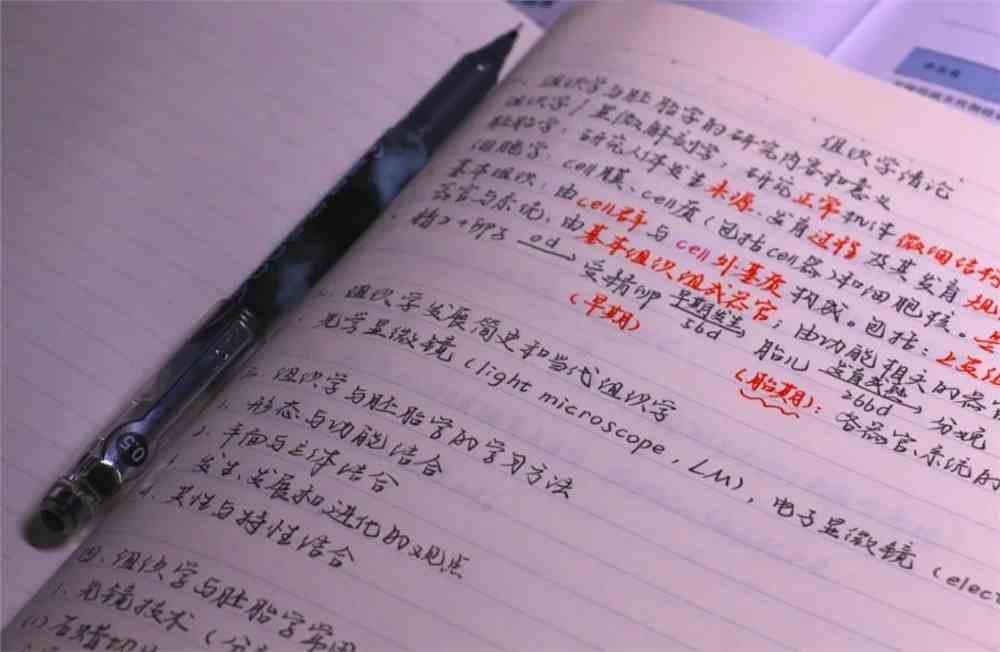 组织学绪论
一、组织学与胚胎学的研究内容和意义
组织学/显微解剖学,研究正常机体微细结构
胚胎学:研究人体发生来源、发育过程及其发育规
细胞学:cell膜、cell质(包括cell器)和细胞核。
基本组织:由cell群与cell外基质构成。包括:上
器官与系统:由基本组织组成器官;由功能相关的器
精子+卵子 0d 受精卵 早期发生 56d 胎儿 266d 分娩
(早期)
(胎期):各器官、系统的
二、组织学发展简史和当代组织学
光学显微镜(light microscope,LM),电子显微镜(elect
三、组织学与胚胎学的学习方法
1、形态与功能结合
2、平面与立体结合
3、发生、发展和进化的观点
4、共性与特性结合
四、组织学与胚胎学常用
1、光镜技术(分
(1)石蜡切
0.5